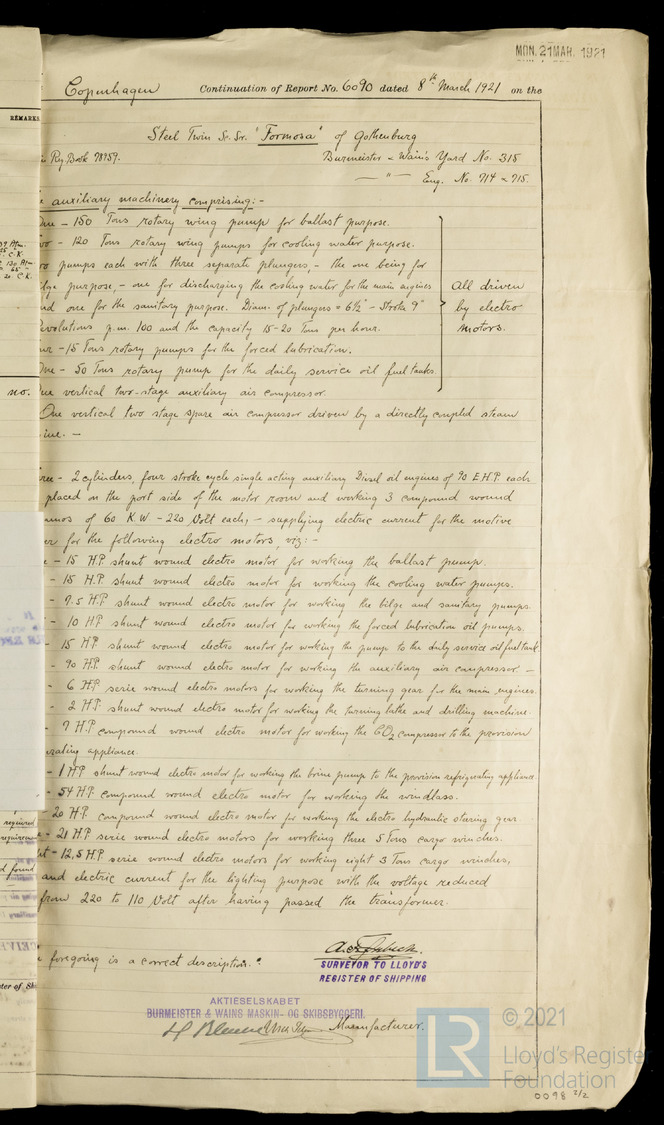 MON. 21 MAR. 1921
Copenhagen Continuation of Report No. 6090 dated 8th March 1921 on the
Steel Twin Sc. Sr. "Formosa" of Gothenburg
Reg. Book 78959. Burmeister & Wain's Yard No. 315
— " — Eng. No. 714 & 715.
auxiliary machinery comprising:-
One - 150 Tons rotary wing pump for ballast purpose.
- 120 Tons rotary wing pumps for cooling water purpose.
pumps each with three separate plungers, - the one being for
purpose, - one for discharging the cooling water for the main engines
and one for the sanitary purpose. Diam. of plungers = 6½" - Stroke 9"
Revolutions p.m. 100 and the capacity 15-20 Tons per hour.
- 15 Tons rotary pumps for the forced lubrication.
One - 50 Tons rotary pump for the daily service oil fuel tanks
One vertical two-stage auxiliary air compressor.
All driven
by electro
motors.
One vertical two stage spare air compressor driven by a directly coupled steam
ine. -
- 2 cylinders, four stroke cycle single acting auxiliary Diesel oil engines of 90 E.H.P. each
placed on the port side of the motor room and working 3 compound wound
amos of 60 K.W. - 220 Volt each, - supplying electric current for the motive
er for the following electro motors, viz:-
- 15 H.P. shunt wound electro motor for working the ballast pump.
- 15 H.P. shunt wound electro motor for working the cooling water pumps.
- 9.5 H.P. shunt wound electro motor for working the bilge and sanitary pumps.
- 10 H.P. shunt wound electro motor for working the forced lubrication oil pumps.
15 H.P. shunt wound electro motor for working the pump to the daily service oil fuel tank
- 90 H.P. shunt wound electro motor for working the auxiliary air compressor -
- 6 H.P. serie wound electro motors for working the turning gear for the main engines.
- 2 H.P. shunt wound electro motor for working the turning lathe and drilling machine.
- 9 H.P. compound wound electro motor for working the CO2 compressor to the provision
erating appliance.
- 1 H.P. shunt wound electro motor for working the brine pump to the provision refrigerating appliance
- 54 H.P. compound wound electro motor for working the windlass.
- 20 H.P. compound wound electro motor for working the electro hydraulic stering gear
- 21 H.P. serie wound electro motors for working three 5 Tons cargo winches.
- 12,5 H.P. serie wound electro motors for working eight 3 Tons cargo winches,
and electric current for the lighting purpose with the voltage reduced
from 220 to 110 Volt after having passed the transformer.
foregoing is a correct description.
SURVEYOR TO LLOYD'S
REGISTER OF SHIPPING
AKTIESELSKABET
BURMEISTER & WAINS MASKIN- OG SKIBSBYGGERI.
Manufacturer.
LR
© 2021
Lloyd's Register
Foundation
0098 2/2
REMARKS
no.
required
requirem
found